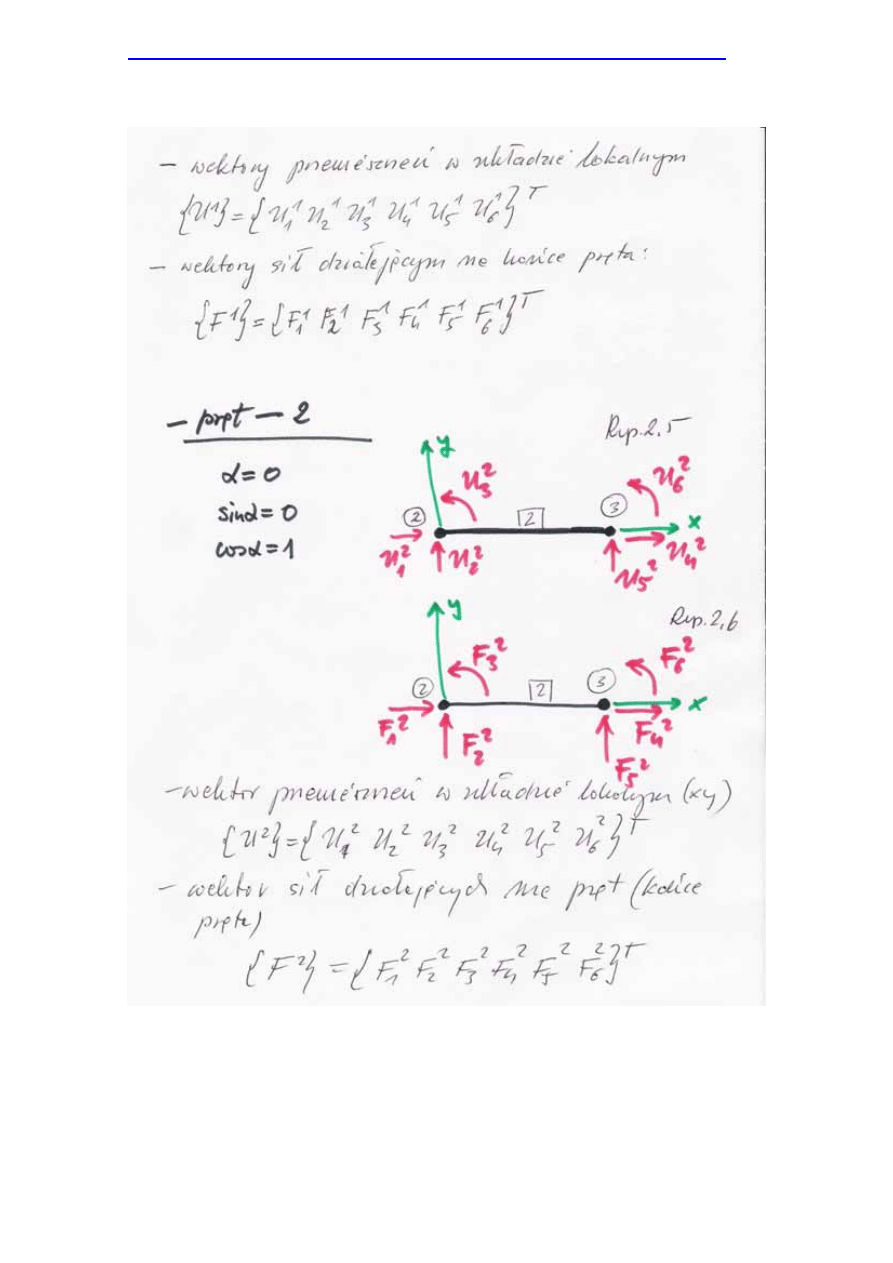 – wektory przemieszczeń w układzie lokalnym
{U¹}={U₁¹ U₂¹ U₃¹ U₄¹ U₅¹ U₆¹}ᵀ
– wektory sił działającym na końce pręta:
{F¹}={F₁¹ F₂¹ F₃¹ F₄¹ F₅¹ F₆¹}ᵀ
– pręt – 2
α=0
sinα=0
cosα=1
Rys.2.5
y
U₃²
U₆²
2
2
3
x
U₁²
U₂²
U₅²
U₄²
Rys.2.6
y
F₃²
F₆²
2
2
3
x
F₁²
F₂²
F₅²
F₄²
– wektor przemieszczeń w układzie lokalnym (xy)
{U²}={U₁² U₂² U₃² U₄² U₅² U₆²}ᵀ
– wektor sił działających na pręt (końce
pręta)
{F²}={F₁² F₂² F₃² F₄² F₅² F₆²}ᵀ